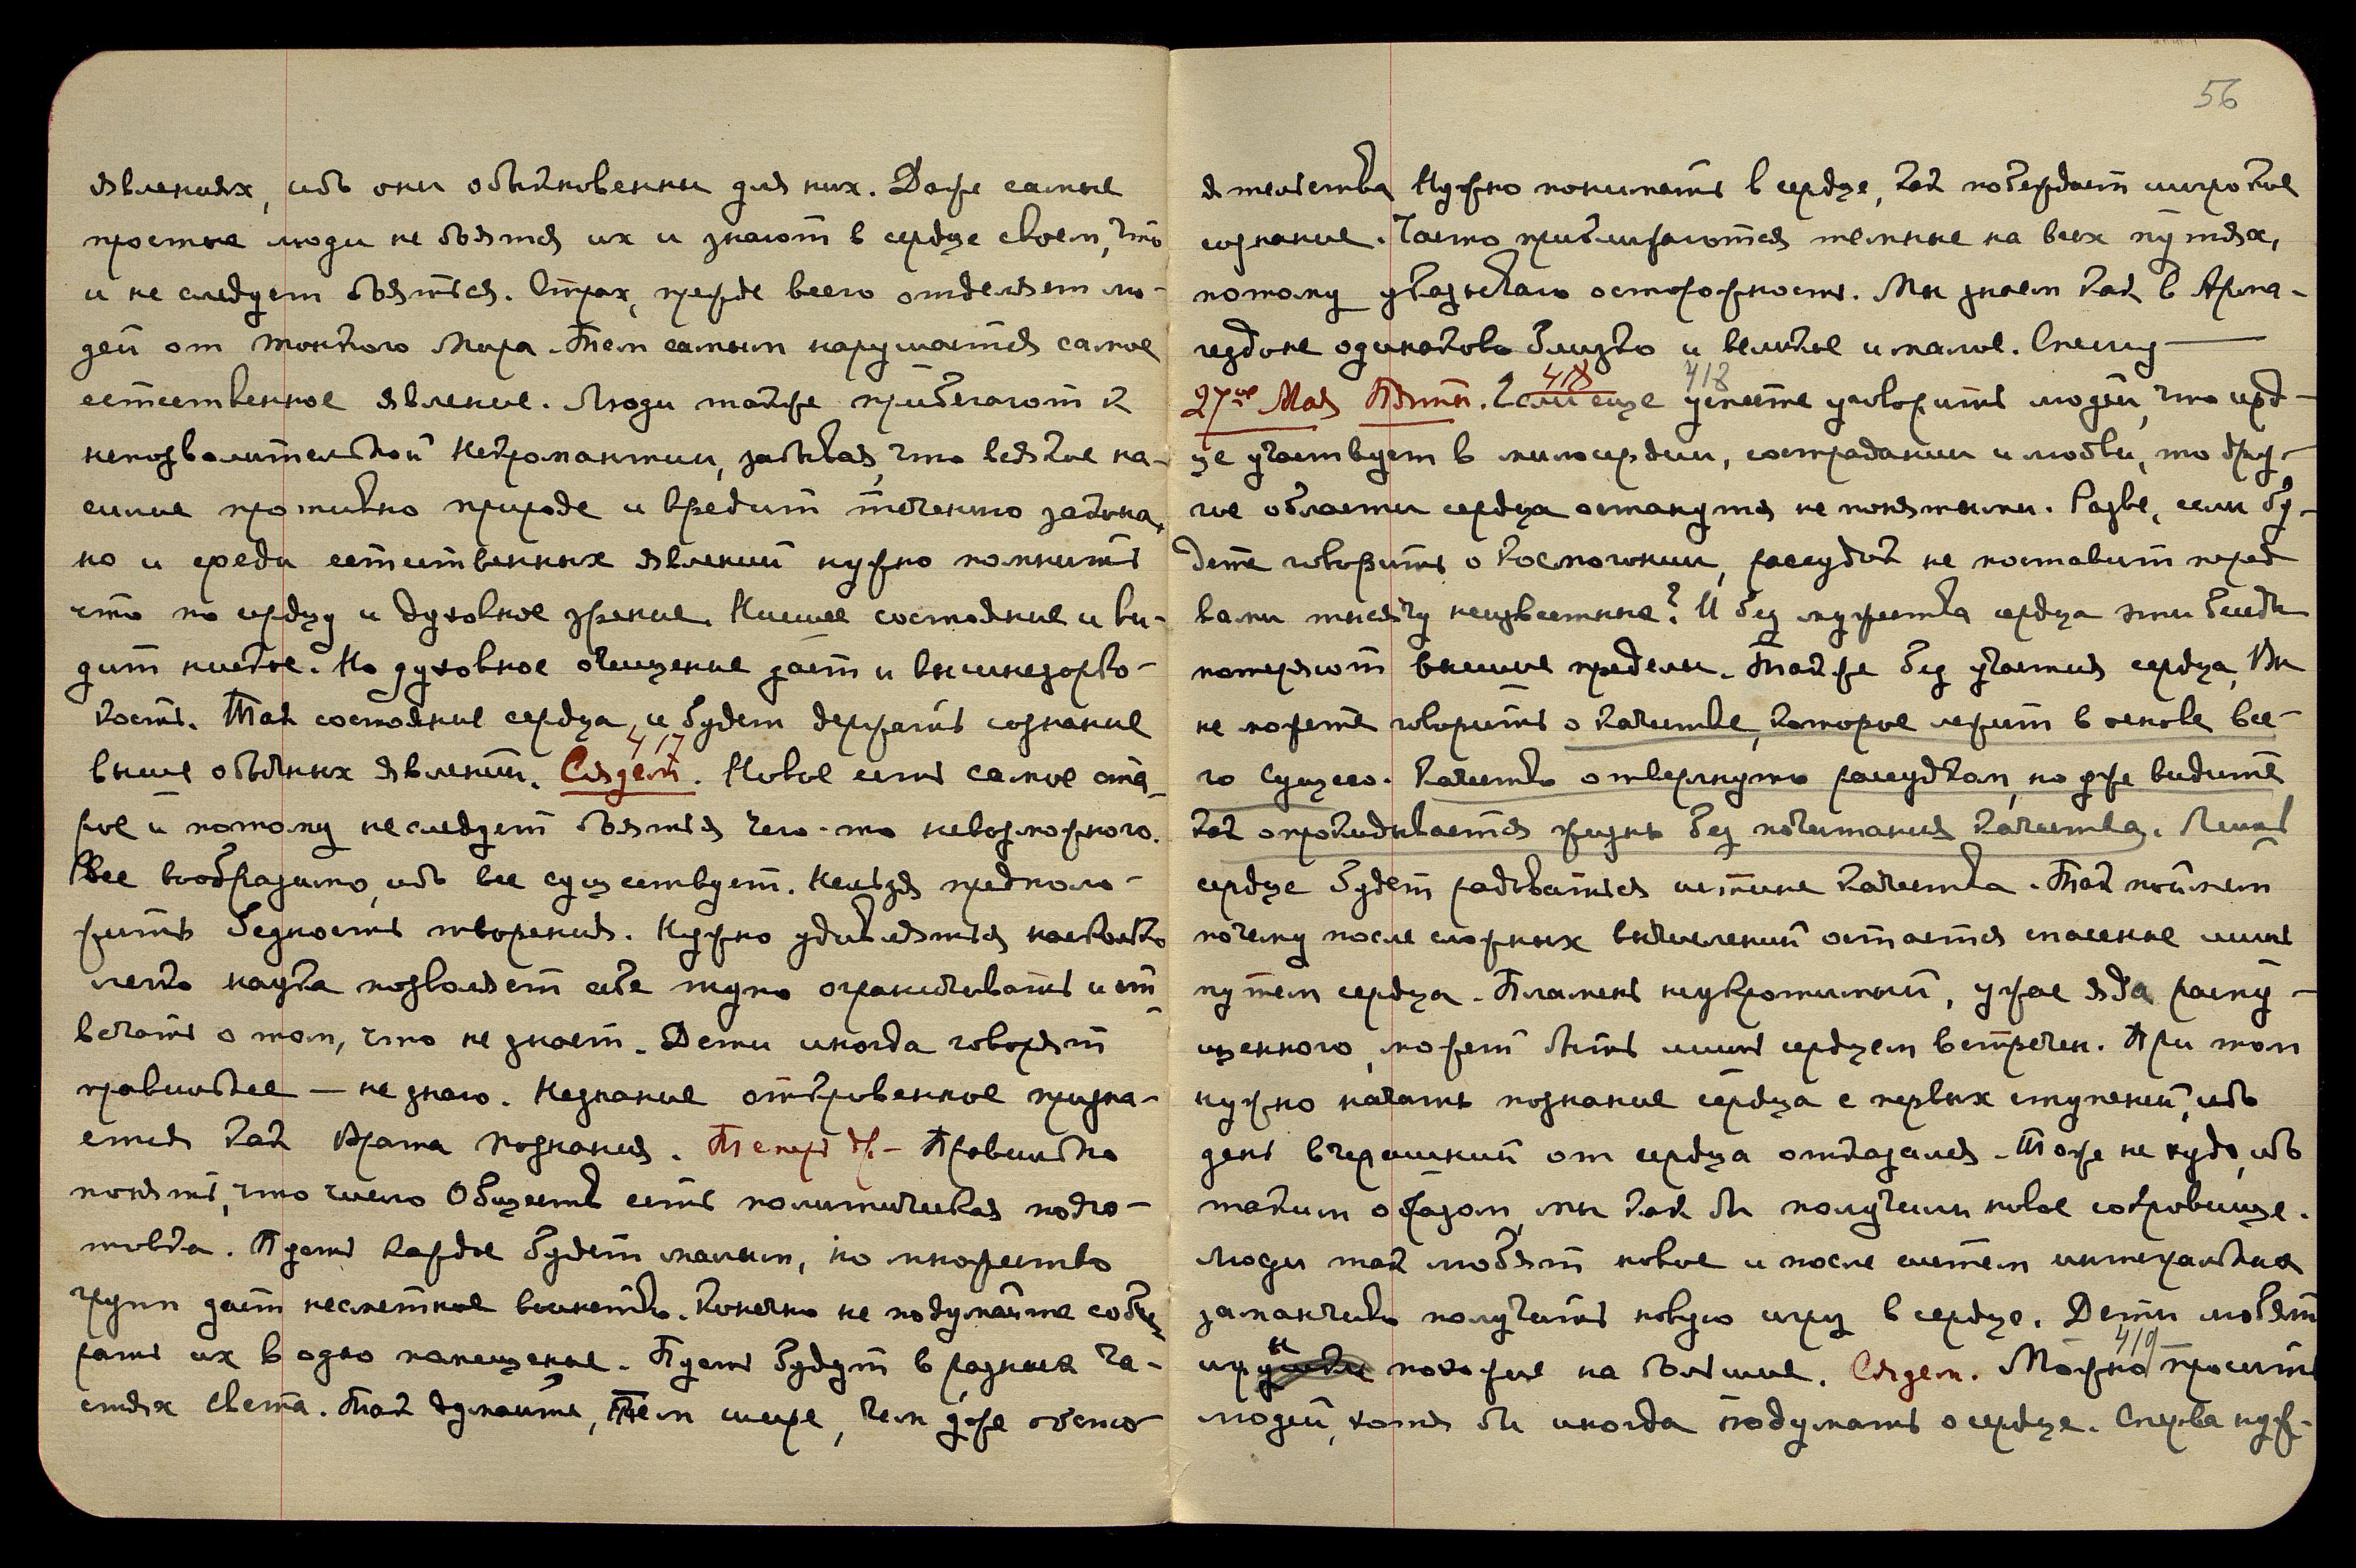 явлениях, ибо они обыкновенны для них. Даже самые
простые люди не боятся их и знают в сердце своем, что
и не следует бояться. Страх, прежде всего отделяет лю-
дей от тонкого Мира. Тем самым нарушается самое
естественное явление. Люди также прибегают к
непозволительной Некромантии, забывая, что всякое на-
силие противно природе и вредит течению закона,
но и среди естественных явлений нужно помнить
что по сердцу и духовное зрение. Низшее состояние и ви-
дит низкое. Но духовное очищение дает и вышнезорко-
кость. Так состояние сердца, и будет держать сознание
выше обычных явлений. 417 Сядем. Новое есть самое ста-
рое и потому не следует бояться чего-то невозможного.
Все вообразимо, ибо все существует. Нельзя предполо-
жить бедность творения. Нужно удивляться насколько
легко наука позволяет себе тупо ограничивать и от-
вечать о том, что не знает. Дети иногда говорят
правильнее — не знаю. Незнание откровенное призна-
ется как Врата познания. Теперь др. - Правильно
понять, что число Обществ есть политическая подго-
товка. Пусть каждое будет малым, но множество
групп дает несметное воинство. Конечно не подумайте соби-
рать их в одно помещение. Пусть будут в разных ча-
стях света. Так думайте, Тем шире, чем уже обсто-
56
ятельства Нужно понимать в сердце, как побеждает широкое
сознание. Часто приближаются темные на всех путях,
потому указываю осторожность. Мы знаем как в Арма-
геддоне одинаково близко и великое и малое. Спешу —
27ое Мая Пятн. 418 Если еще 418 успеете уговорить людей, что серд-
це участвует в милосердии, сострадании и любви, то дру-
гие области сердца останутся не понятыми. Разве, если бу-
дете говорить о Космогонии, рассудок не поставит перед
вами тысячу неизвестных? И без мужества сердца эти битвы
потеряют высшие пределы. Также без участия сердца, Вы
не можете говорить о качестве, которое лежит в основе все-
го сущего. Качество отвергнуто рассудком, но уже видите
как опрокидывается жизнь без почитания качества. Лишь
сердце будет радоваться истине качества. Так поймем
почему после сложных вычислений остается спасение лишь
путем сердца. Пламень неукротимый, ужас яда распу-
щенного, может быть лишь сердцем встречен. При том
нужно начать познание сердца с первых ступеней, ибо
день вчерашний от сердца отказался. Тоже не худо, ибо
таким образом, мы как бы получили новое сокровище.
Люди так любят новое и после систем интегральных
заманчиво получить новую игру в сердце. Дети любят
игры похожие на большие. Сядем. 419 Можно просить
людей, хотя бы иногда подумать о сердце. Сперва нуж-